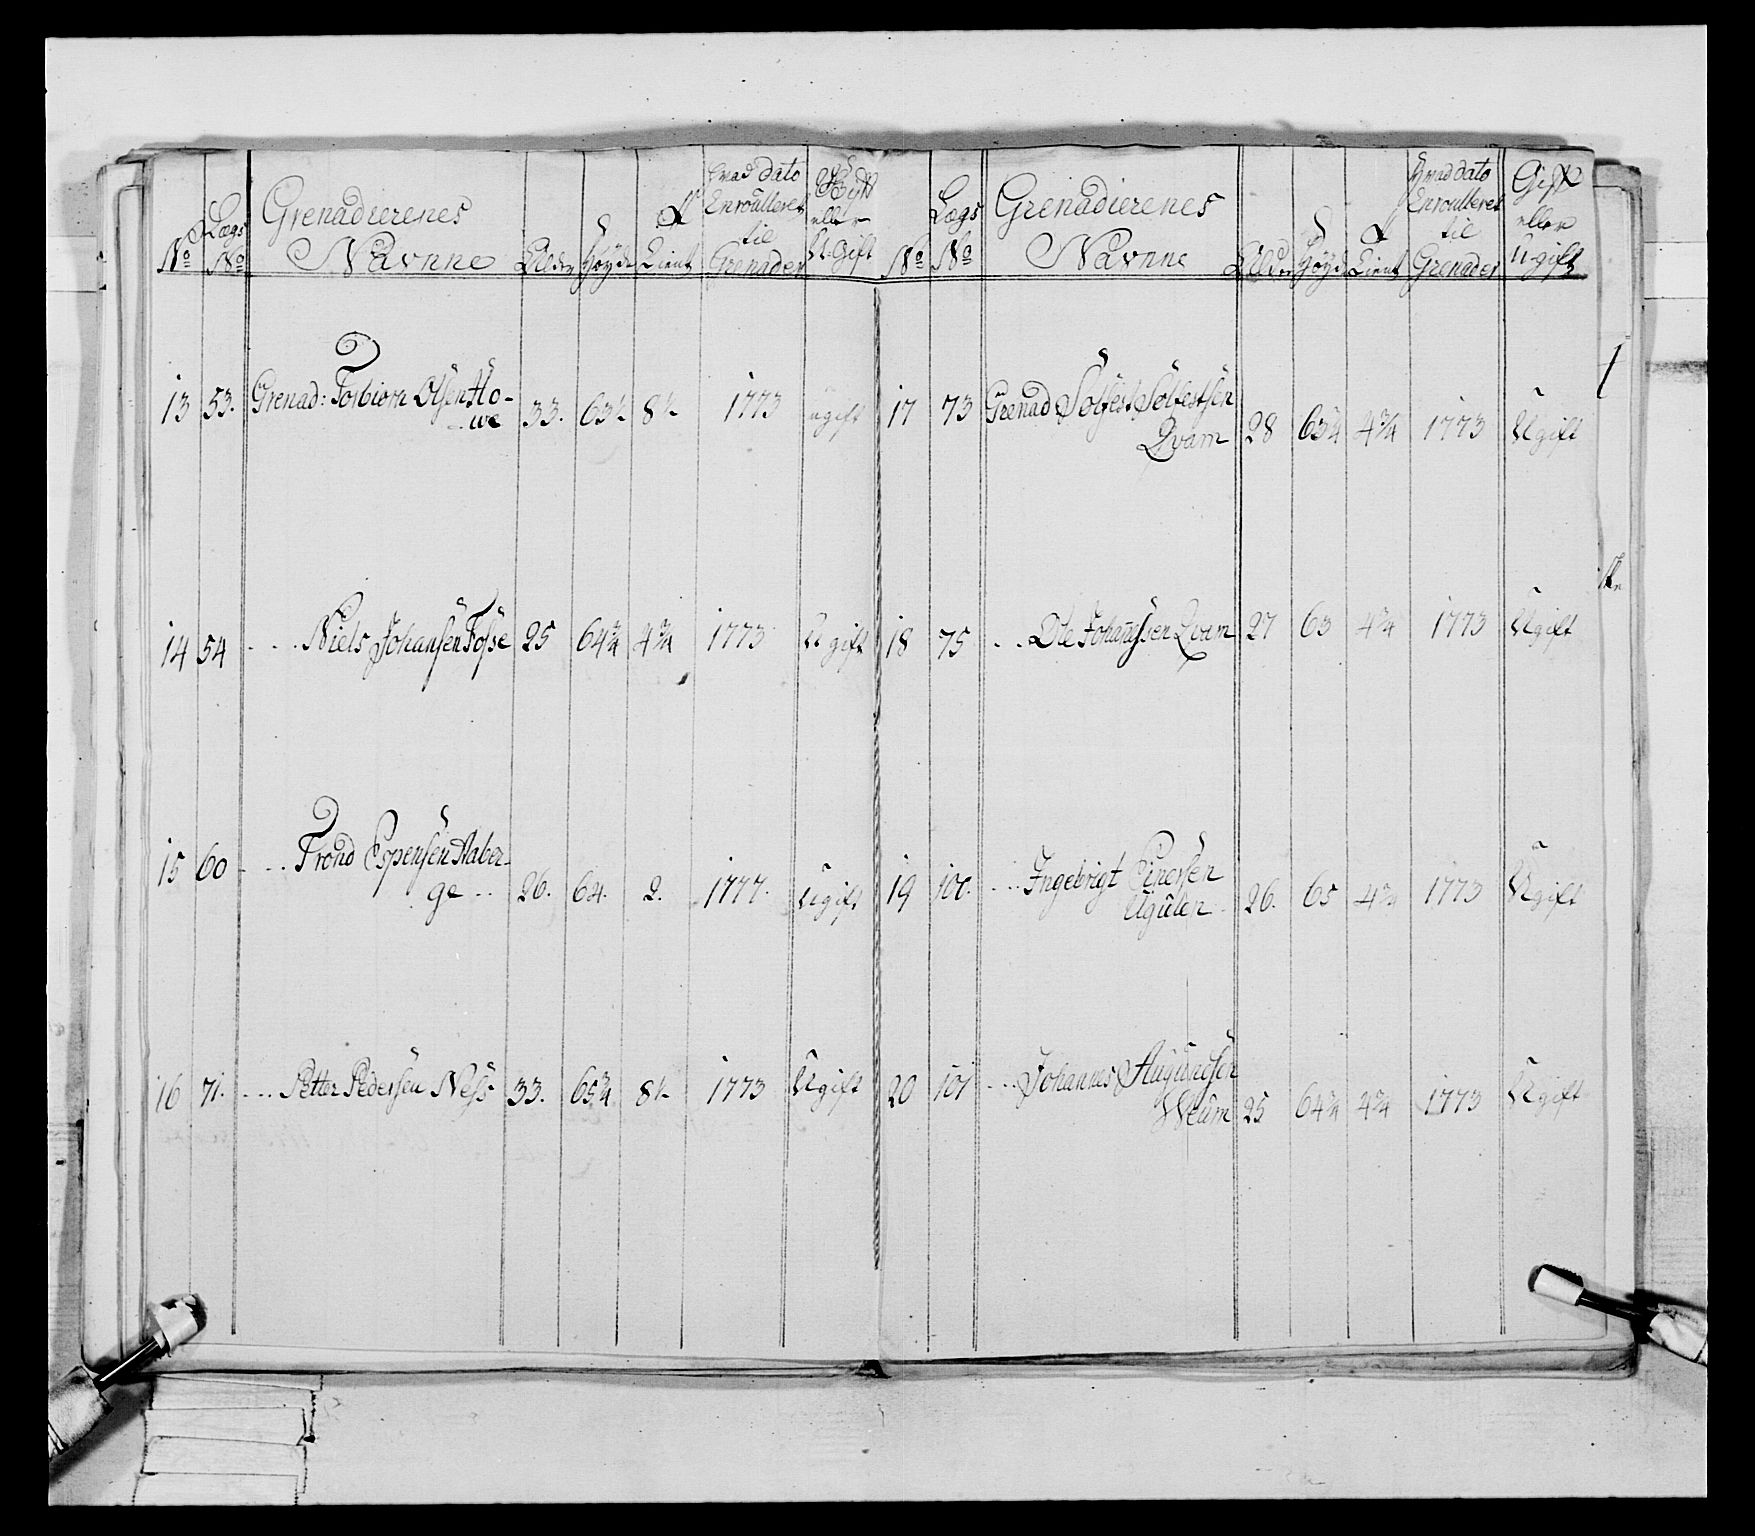 Nº Lægs Nº Grenadierenes Navnne Alder Høyde Tient Hvad dato Enroulleret til Grenader Gift eller U-Gift
13 53. Grenad: Torbiörn Olsen Ho-
we 33. 63½ 8½ 1773 ugift
14 54 - - . Niels Johansen Fosse 25 64¾ 4¾ 1773 Ugift
15 60 - - . . Trond Espensen Aaber-
ge - - 26. 64. 2. 1777. Ugift
16 71. - - - . Petter Pedersen Ness 33. 65¾ 8½ 1773 Ugift
Nº Lægs Nº Grenadierenes Navnne Alder Høyde Tient Hvad dato Enroulleret til Grenader Gift eller Ugift
17 73 Grenad Solfest Solfestsen
Qvam 28 63¼ 4¾ 1773 Ugift
18 75 - . . Ole Johansen Qvam 27 63 4¾ 1773 Ugift
19 100. - . . Ingebrigt Einersen
Ugulen 26. 65 4¾ 1773 Ugift
20 101 - . . Johannes Augundsen
Weum 25 64¾ 4¾ 1773 Ugift